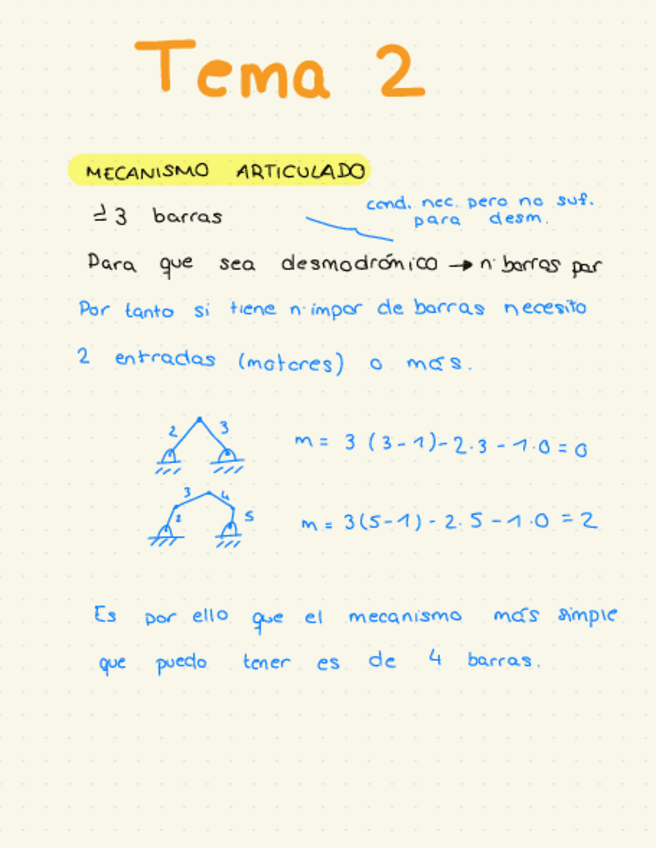 Tema 2
MECANISMO ARTICULADO
≥ 3 barras
cond. nec. pero no suf.
para desm.
Para que sea desmodrónico → nº barras par
Por tanto si tiene nº impar de barras necesito
2 entradas (motores) o más.
2 3
m = 3 (3-1) - 2·3 - 1·0 = 0
3 4
2 5
m = 3(5-1) - 2·5 - 1·0 = 2
Es por ello que el mecanismo más simple
que puedo tener es de 4 barras.